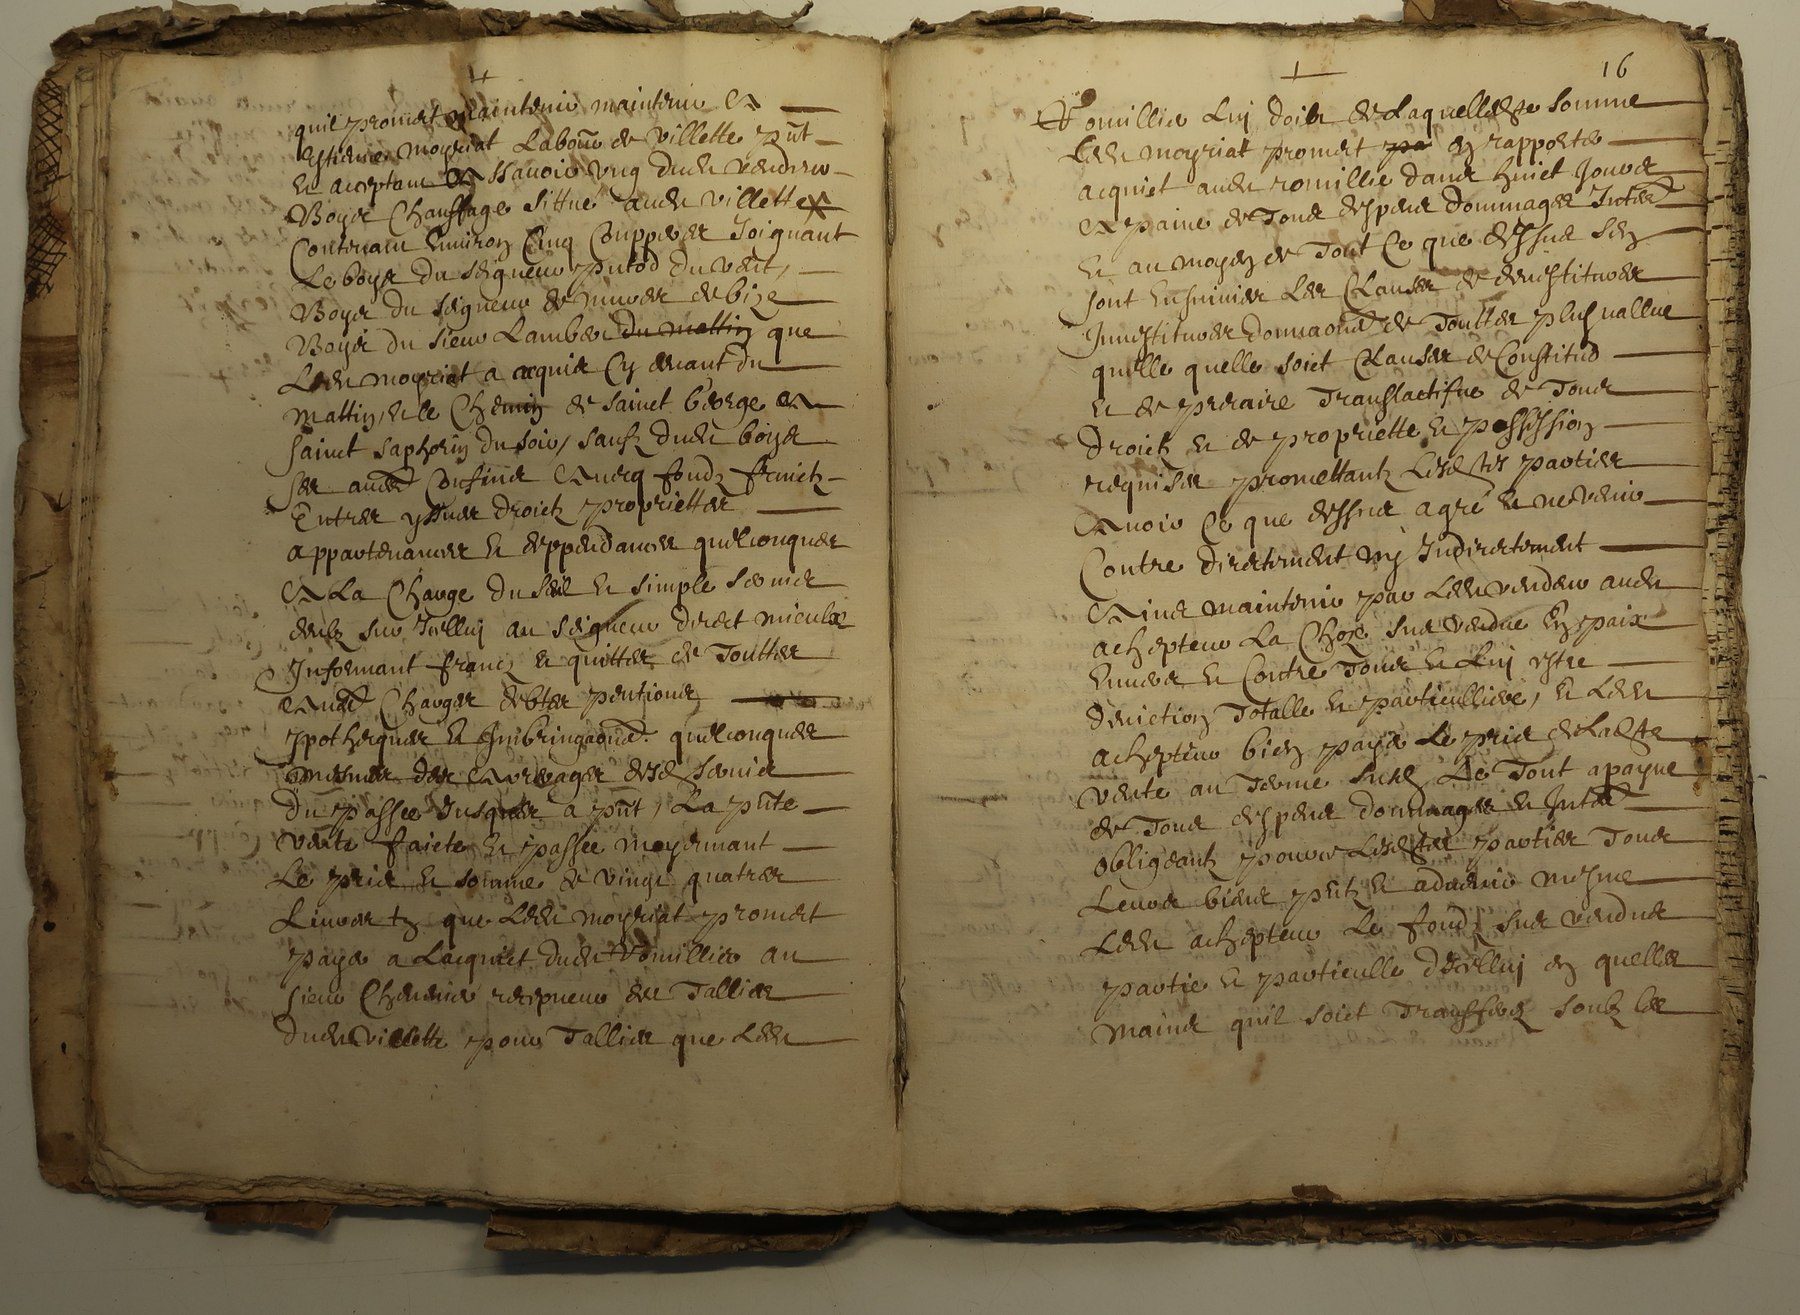 quil promet maintenir maintenir A
Estienne moyriat Labour de villette pnt
et acceptant A Scavoir ung dudit vendeur
Boys Chauffage sittué audit villette
Contenant Environ Cinq Couppees Joignant
Le boys du seigneur putod du vent,
Boys du seigneur de de bize
Boys du sieur Lambert du mattin que
Ledit moyriat a acquis Cy devant du
mattin, et le Chemin de sainct George A
sainct saphorin du soir, saufz dudit boys
ses aultres Confins Avecq fondz fruictz
Entrees yssues droictz proprietter
appartenances et deppendances quelconques
A La Charge du seul et simple servis
deubz sur Icelluj au seigneur direct mieulx
Informant francq et quitte de Touttes
Aultres Charges debtes pentions
Ypothecques et Imbringaons quelconques
mesmes des Arreages desd servis
du passee Jusques a pnt, La pnte
vente faicte et passee moyennant
Le pris et somme de vingt quatres
Livres tz que Ledit moyriat promet
paye a Lacquict dudit Romillier au
sieur recepveur des Tallies
dudit villette pour Tallies que Ledit
16
Romillier Luj doibt de Laquelledte somme
Ledit moyriat promet pa en rapporter
acquict audit romillie dans huict Jours
A paine de Tous despens dommages Interz
et au moyen de Tout Ce que dessus sen
sont Ensuivies Les Clauses de devestitures
Investitures donnaons de Touttes plus vallue
quelle quelle soict Clauses de Constitud
et de precaire Translactifve de Tous
droictz et de propriette et possession
requises promettantz Lesdtes parties
Avoir Ce que dessus agré et ne venir
Contre directement ny Indirectement
Ains maintenir par Ledit vendeur audit
achepteur La Choze sus vendue En paix
Envers et Contre Tous et Luj estre
deviction Totalle et particulliere, et Ledit
achepteur bien payé Le pris de Ladte
vente au Terme susd Le Tout a payne
de Tous despens dommages et Interz
obligeantz pour ce Lesdtes parties Tous
Leurs biens pntz et advenir mesme
Ledit achepteur Le fondz sus vendus
partie et particulle dIcelluj en quelles
mains quil soict Transferez soubz les